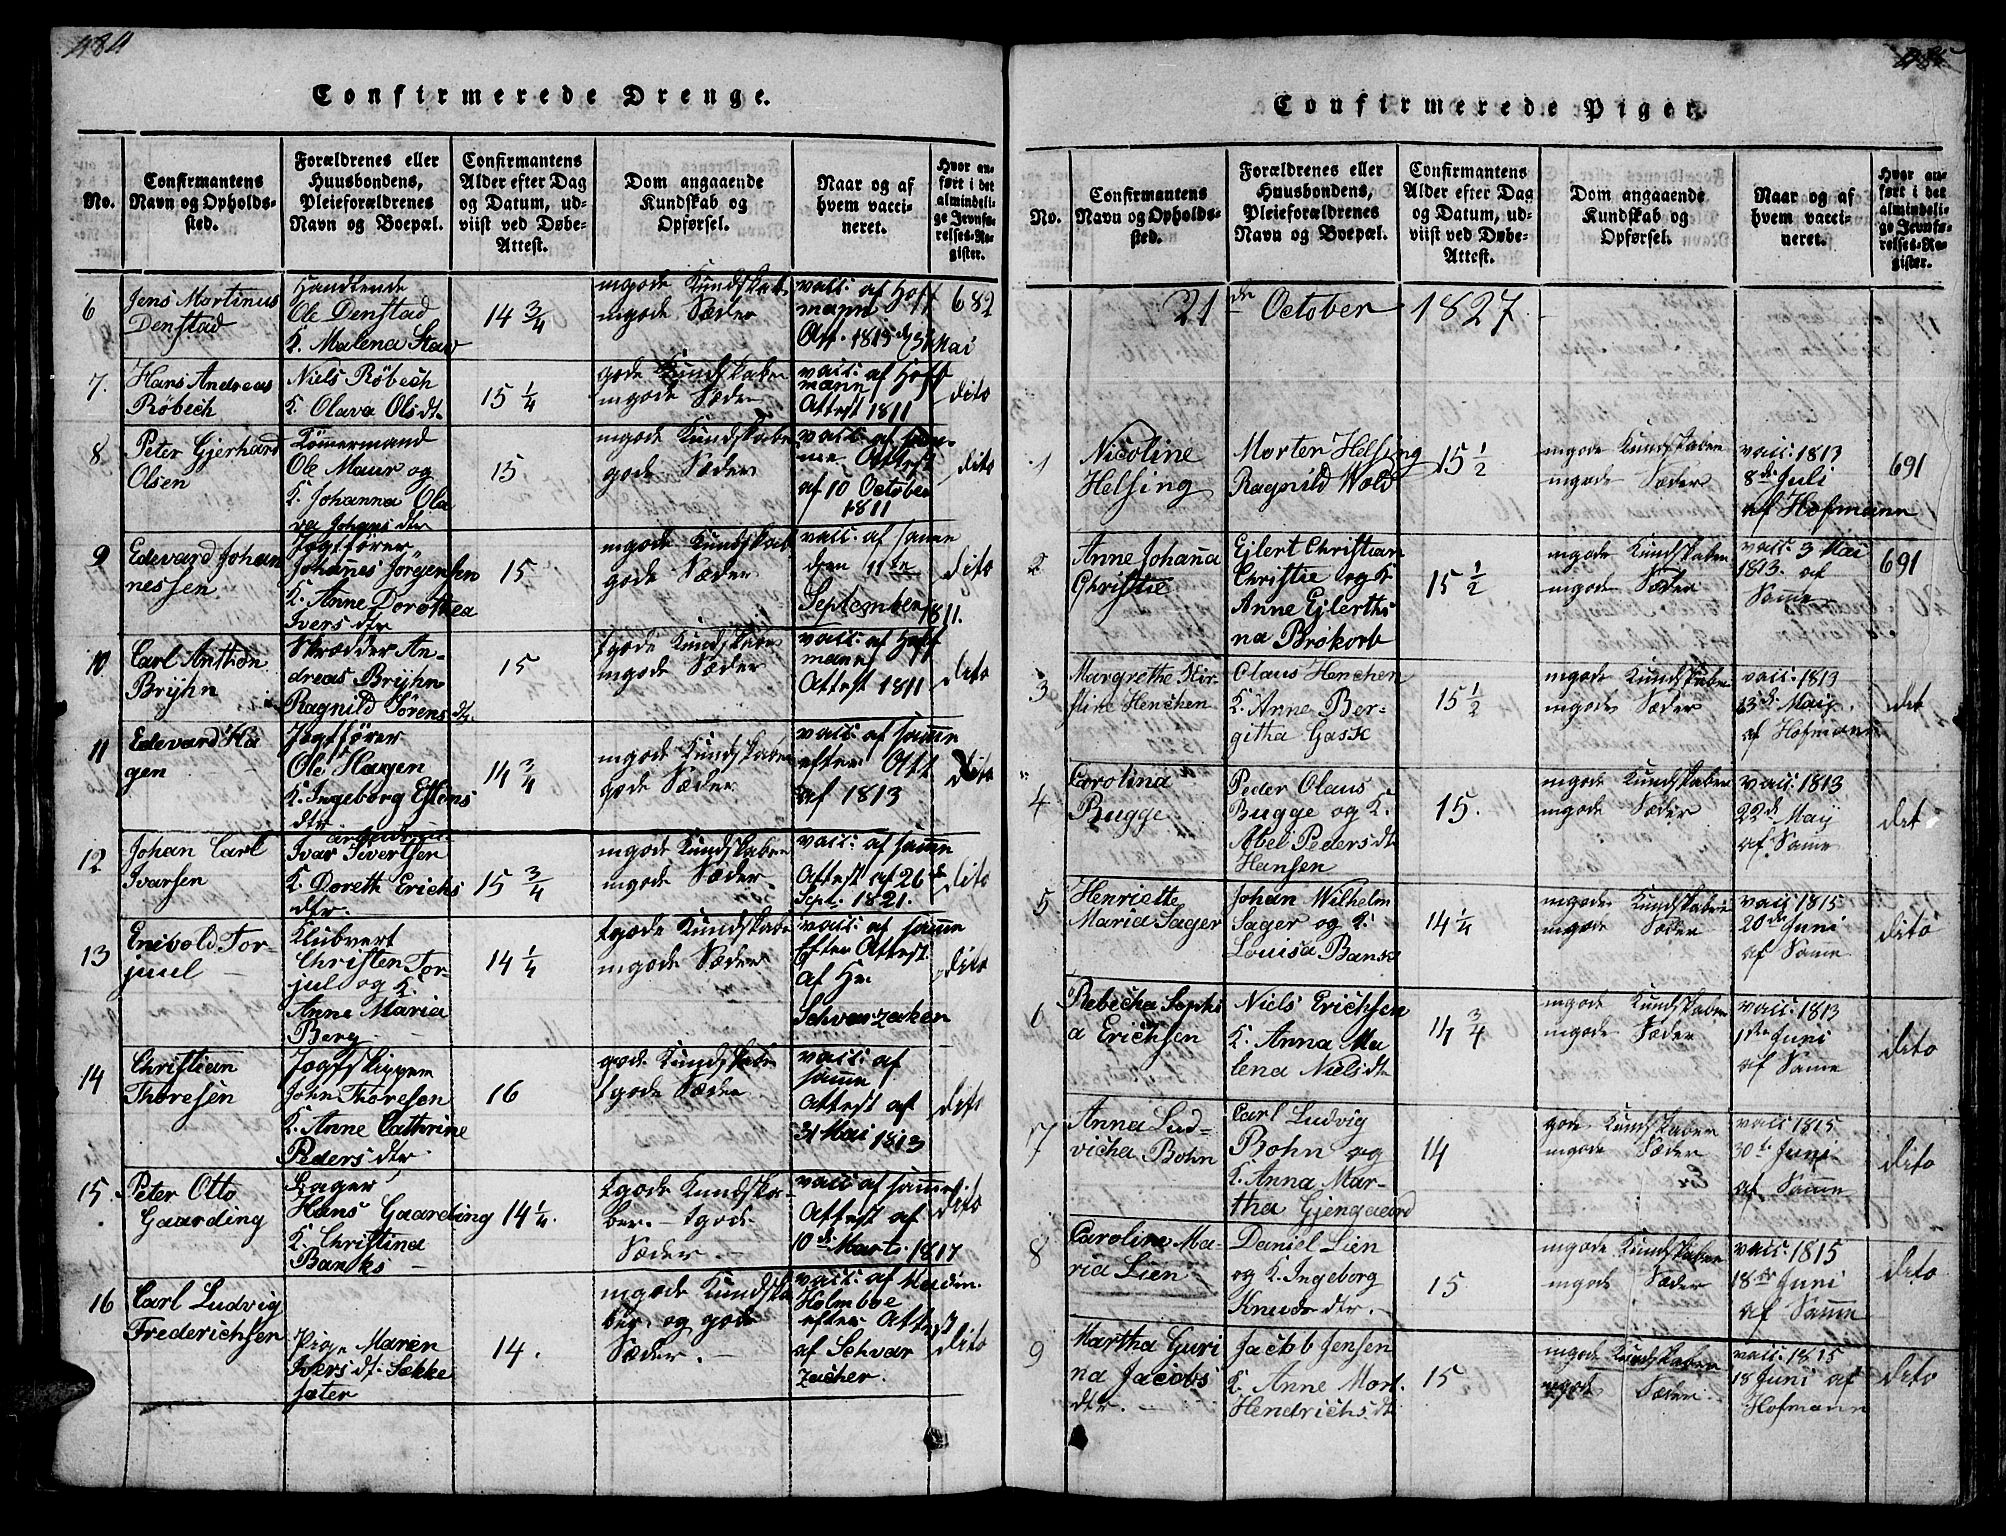 484
Confirmerede Drenge.
No.
Confirmantens
Navn og Opholds-
sted.
Forældrenes eller
Huusbondens,
Pleieforældrenes
Navn og Boepæl.
Confirmantens
Alder efter Dag
og Datum, ud-
viist ved Døbe-
Attest.
Dom angaaende
Kundskab og
Opførsel.
Naar og af
hvem vacci-
neret.
Hvor an-
ført i det
almindeli-
ge Jevnfø-
relses-Re-
gister.
6
Jens Martinus
Denstad
Ole Denstad
K. Malena Stav
14 3/4
mgode Kundskab
mgode Sæder
vacc: af Hoff
mann
Att. 1815 d 31 Mai
682
7.
Hans Andreas
Röbech
Niels Röbech
K. Olava Olsdtr
15 1/4
gode Kundskaber
mgode Sæder
vacc: af Hoff
mann
Attest 1811
dito
8
Peter Gjerhard
Olsen
Tömmermand
Ole Maur og
K. Johanna Ola
va Johansdtr
15
mgode Kundskaber
gode Sæder
vacc: af sam-
me Attest
af 10 October
1811
dito
9
Edevard Johan
nessen
Jogtfører
Johannes Jörgensen
K. Anne Dorothea
Ivers dtr
15
mgode Kundskab
gode Sæder
vacc: af samme
den 11te
September 1811.
dito
10
Carl Anthon
Brijhn
Skrædder An-
dreas Brijhn
Ragnild Sörens dtr
15
tgode Kundskaber
mgode Sæder
vacc: af Hoff
mann
Attest 1811
dito
11
Edevard Ha
gen
Jogtfører
Ole Hagen
K. Ingeborg Estens
dtr
14 3/4
mgode Kundskaber
gode Sæder
vacc: af samme
efter Att
af 1813
dito
12
Johan Carl
Ivarsen
Ivar Sivertsen
K. Doreth Erichs
dtr.
15 3/4
mgode Kundskaber
mgode Sæder
vacc: af samme
Attest af 26
Sept. 1821.
dito
13
Enevold Tor-
juul
Klubvert
Christen Tor-
jul og K.
Anne Maria
Berg
14 1/4
tgode Kundskaber
mgode Sæder
vacc: af samme
Efter Attest
af Hr
Schvarzacken
dito
14
Christian
Thoresen
Jogtskipper
John Thoresen
K. Anne Cathrine
Peders dtr
16
gode Kundskaber
tgode Sæder.
vacc: af
samme
Attest af
31 Mai 1813
dito
15.
Peter Otto
Gaarding
Bager
Hans Gaarding
K. Christina
Banks
14 1/4.
tgode Kundska-
ber. - tgode
Sæder. -
vacc: af samme
Attest af
10de Marts. 1817
dito
16
Carl Ludvig
Frederichsen
Pige Maren
Ivers dt. Sekke
sæter
14.
mgode Kundska
ber. og gode
Sæder. -
vacc: af
Holmboe
efter Attest
af Schvar
zacher.
dito
485
Confirmerede Piger.
No.
Confirmantens
Navn og Opholds-
sted.
Forældrenes eller
Huusbondens,
Pleieforældrenes
Navn og Boepæl.
Confirmantens
Alder efter Dag
og Datum, ud-
viist ved Døbe-
Attest.
Dom angaaende
Kundskab og
Opførsel.
Naar og af
hvem vacci-
neret.
Hvor an-
ført i det
almindeli-
ge Jevnfø-
relses-Re-
gister.
21de October 1827.
1
Nicoline
Helsing
Morten Helsing
Ragnild Wold
15 1/2
mgode Kundskaber
mgode Sæder
vacc: 1813
8de Juli
af Hofmann
691
2
Anne Johana
Christie
Ejlert Christian
Christie og K
Anne Ejlerths
na Brökorb
15 1/2
mgode Kundskaber
mgode Sæder
vacc: 3 Mai
1813. af
Samme
691
3
Margrethe Kir-
stine Henchen
Claus Henchen
K. Anne Ber-
githa Gasse
15 1/2
mgode Kundskaber
mgode Sæder
vacc: 1813
13d. Maij
af Hofmann
det
4
Carolina
Bugge
Peder Olaus
Bugge og K.
Abel Peders dt
Hansen
15.
mgode Kundskaber
mgode Sæder
vacc. 1813
22d. Maij
af Samme
det
5
Henriette
Maria Sager
Johan Wilhelm
Sager og K.
Lovisa Banse
14 1/4
mgode Kundskaber
mgode Sæder
vacc: 1815
20de Juni
af Samme
dito
6
Rebecha Sophi
a Erichsen
Niels Erichsen
K. Anna Ma
lena Nielsdt
14 3/4
mgode Kundskaber
mgode Sæder
vacc: 1813
1ste Juni
af Samme
dito
7
Anna Lud-
vicha Bohn
Carl Ludvig
Bohn og
K. Anna Mar-
tha Gjengaard
14
gode Kundskaber
mgode Sæder
vacc 1815
30d. Juni
af Samme
dito
8
Caroline Ma-
ria Lien
Daniel Lien
og K. Ingeborg
Knuds dtr. -
15
mgode Kundskaber
mgode Sæder
vacc. 1815
18de Juni
af Samme
dito
9
Martha Guri
na Jacobs
dtr. -
Jacob Jensen
K. Anne Mart.
Hendrichs dt
15
mgode Kundskaber
mgode Sæder
vacc. 1815
18 Juni af
Hofmann
dito